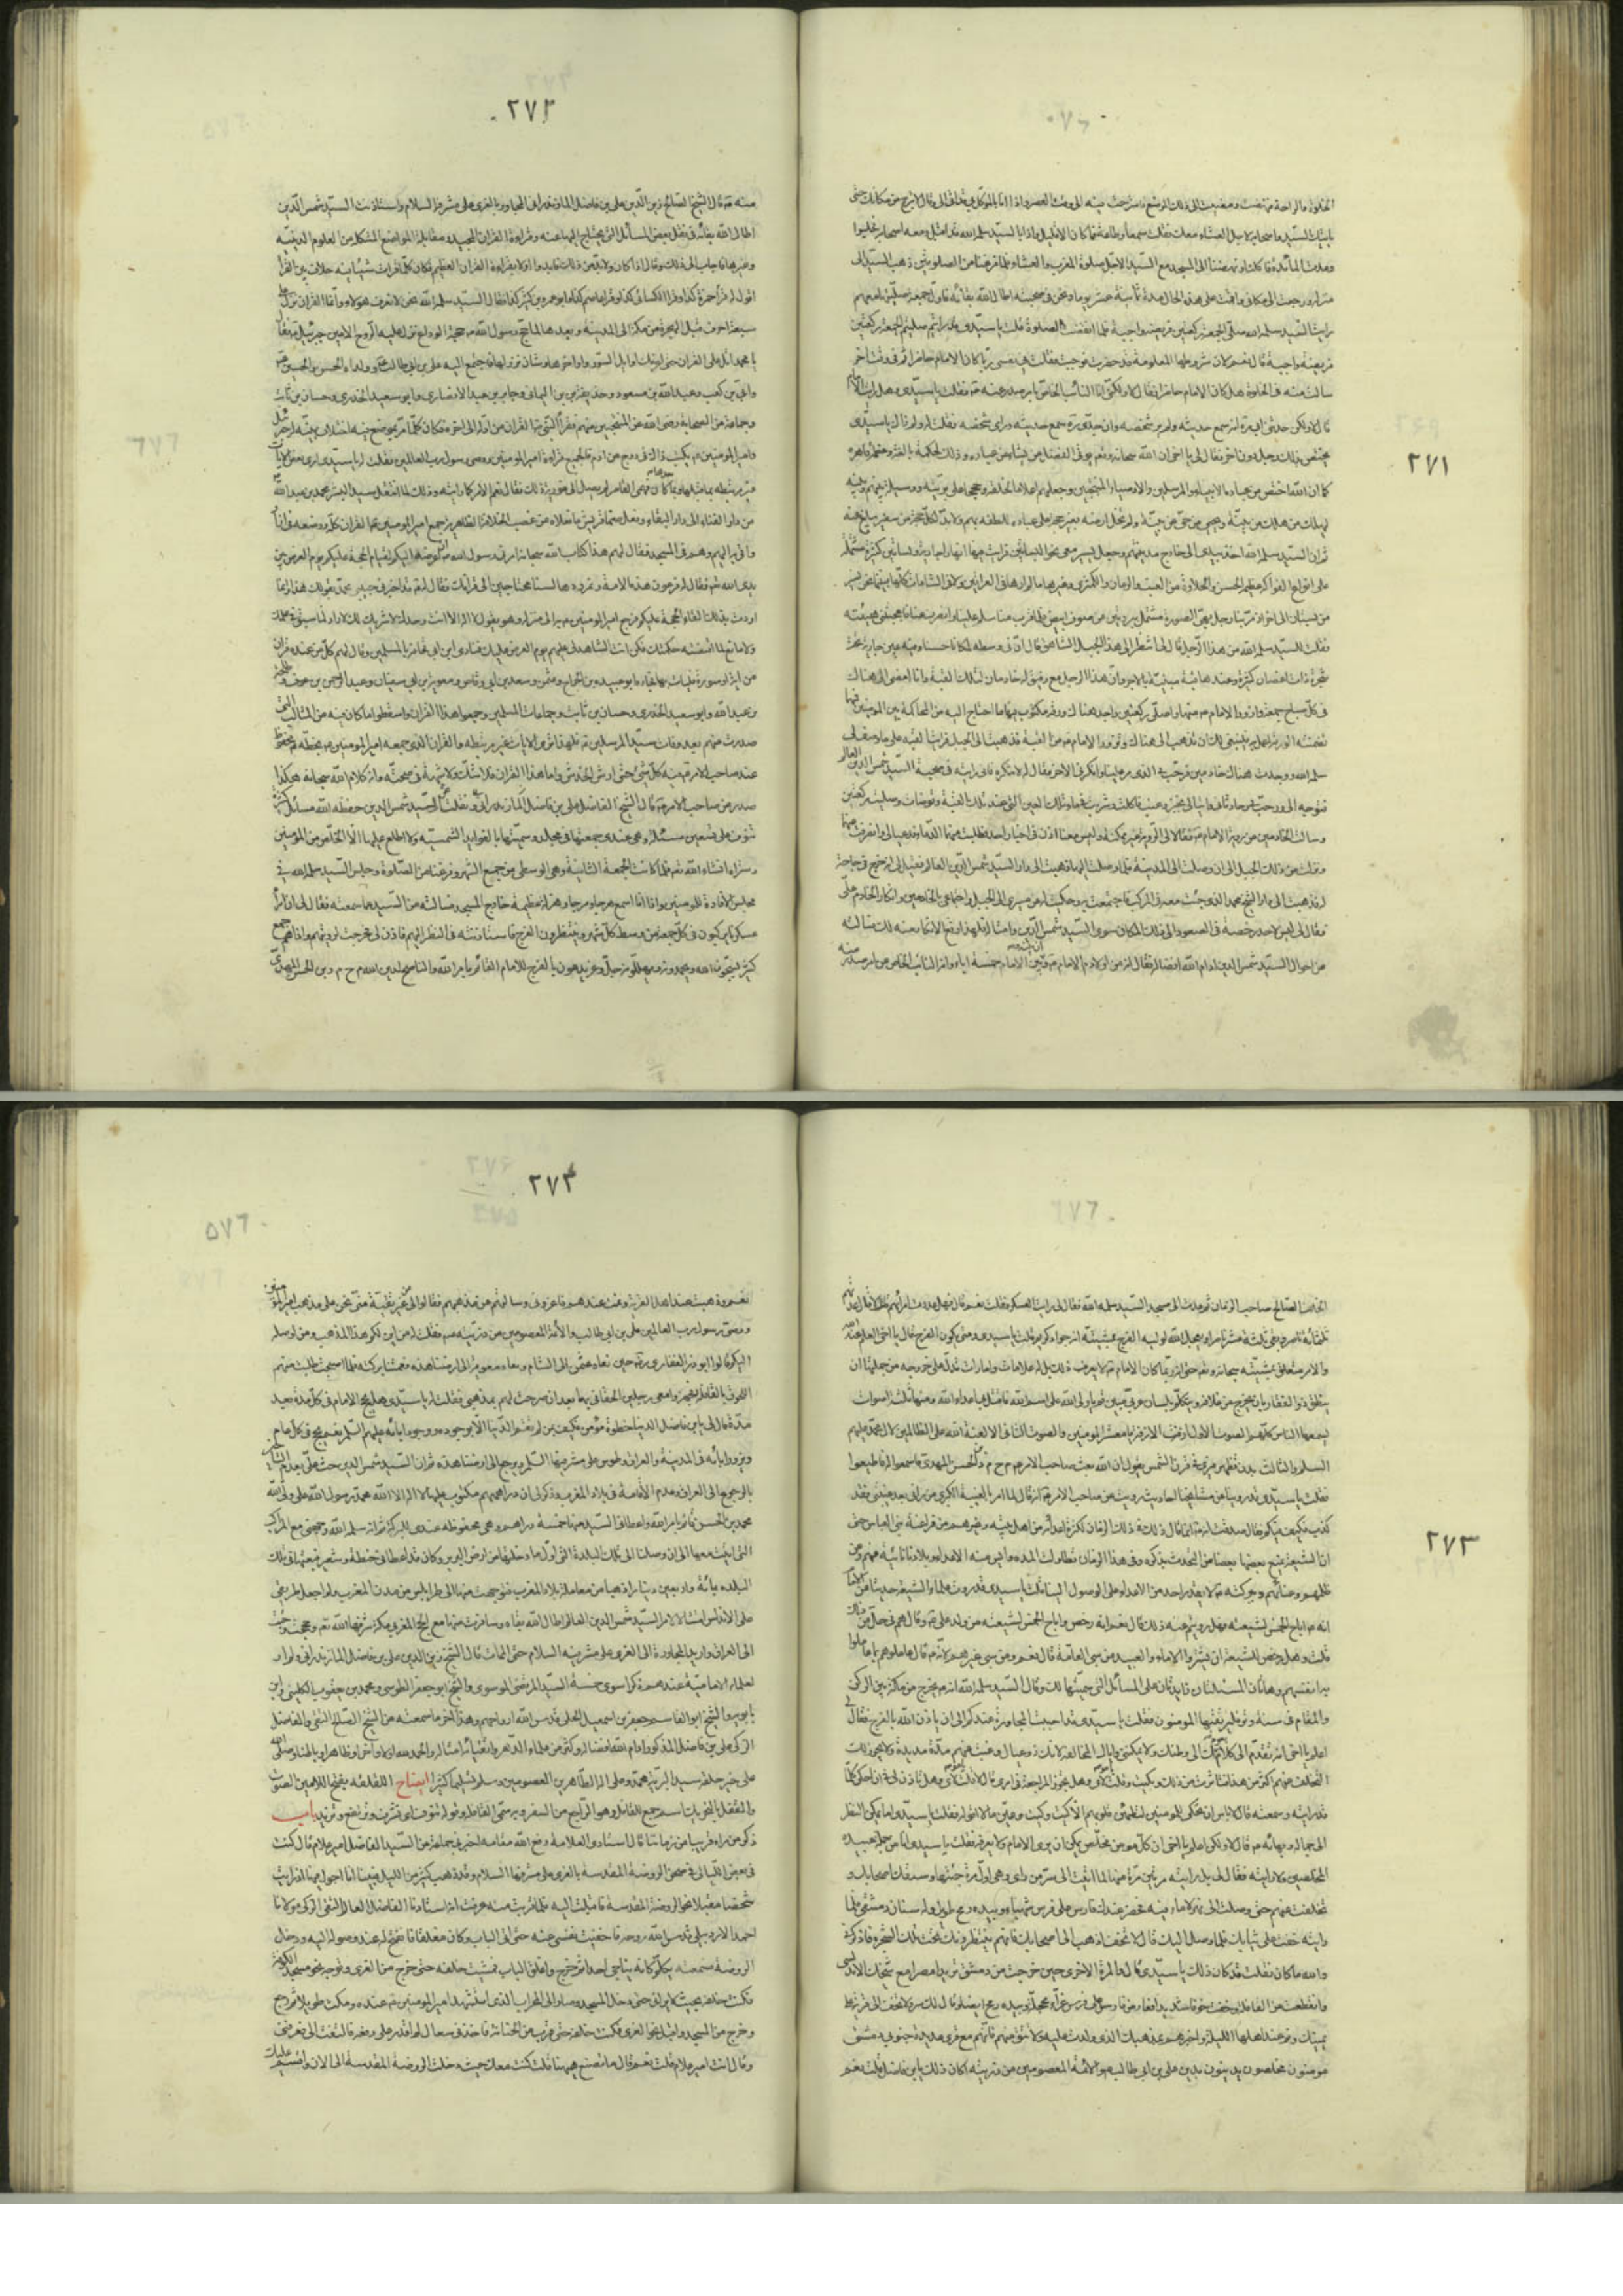 ٢٧١
الخلوة والراحة فنهضت ومضيت الى ذلك الموضع فاسترحت فيه الى وقت العصر واذا انا بالموكل بي قد اتى الي وقال لا تبرح من مكانك حتى
ياتيك السيد واصحابه لاجل العشاء معك فقلت سمعا وطاعة فما كان الا قليل واذا بالسيد سلمه الله قد اقبل ومعه اصحابه فجلسوا
ومدت المائدة فاكلت ونهضنا الى المسجد مع السيد لاجل صلوة المغرب والعشاء فلما فرغنا من الصلوتين ذهب السيد الى
منزله ورجعت الى مكاني واقمت على هذه الحال مدة ثمانية عشر يوما ونحن في صحبته اطال الله بقائه فاول جمعة صليتها معهم
رايت السيد سلمه الله صلى الجمعة ركعتين فريضة واجبة فلما انقضت الصلوة قلت يا سيدي قد رايتكم صليتم الجمعة ركعتين
فريضة واجبة قال نعم لان شروطها المعلومة قد حضرت فوجبت فقلت في نفسي ربما كان الامام حاضرا ثم في وقت اخر
سالت منه في الخلوة هل كان الامام حاضرا فقال لا ولكني انا النائب الخاص بامر صدر عنه ع فقلت يا سيدي وهل رايت الامام
قال لا ولكن حدثني ابي ره انه سمع حديثه ولم ير شخصه وان جدي ره سمع حديثه وراى شخصه فقلت له ولم ذاك يا سيدي
يختص بذلك رجل دون اخر فقال لي يا اخي ان الله سبحانه وتعم يوتي الفضل من يشاء من عباده وذلك لحكمة بالغة وعظمة قاهرة
كما ان الله اختص من عباده الانبياء والمرسلين والاوصياء المنتجبين وجعلهم اعلاما لخلقه وحججا على بريته ووسيلة بينهم وبينه
ليهلك من هلك عن بينة ويحيى من حي عن بينة ولم يخل ارضه بغير حجة على عباده للطفه بهم ولا بد لكل حجة من سفير يبلغ عنه
ثم ان السيد سلمه الله اخذ بيدي الى خارج مدينتهم وجعل يسير معي نحو البساتين فرايت فيها انهارا جارية وبساتين كثيرة مشتملة
على انواع الفواكه عظيمة الحسن والحلاوة من العنب والرمان والكمثرى وغيرها ما لم ارها في العراقين ولا في الشامات كلها فبينما نحن نسير
من بستان الى اخر اذ مر بنا رجل بهي الصورة مشتمل ببردتين من صوف ابيض فلما قرب منا سلم علينا وانصرف عنا فاعجبتني هيئته
فقلت للسيد سلمه الله من هذا الرجل قال لي اتنظر الى هذا الجبل الشاهق
قال ان في وسطه لمكانا حسنا وفيه عين جارية تحت
شجرة ذات اغصان كثيرة وعندها قبة مبنية بالاجر وان هذا الرجل مع رفيق له خادمان لتلك القبة وانا امضي الى هناك
في كل صباح جمعة وازور الامام ع منها واصلي ركعتين واجد هناك ورقة مكتوب فيها ما احتاج اليه من المحاكمة بين المومنين فمهما
تضمنته الورقة اعمل به فينبغي لك ان تذهب الى هناك وتزور الامام ع من القبة فذهبت الى الجبل فرايت القبة على ما وصف لي
سلمه الله ووجدت هناك خادمين فرحب بي الذي مر علينا وانكرني الاخر فقال له لا تنكره فاني رايته في صحبة السيد شمس الدين العالم
فتوجه الي ورحب بي وحادثاني واتياني بخبز وعنب فاكلت وشربت من ماء تلك العين التي عند تلك القبة وتوضات وصليت ركعتين
وسالت الخادمين عن روية الامام ع فقالا لي الروية غير ممكنة وليس معنا اذن في اخبار احد فطلبت منهما الدعاء فدعيا لي وانصرفت عنهما
ونزلت من ذلك الجبل الى ان وصلت الى المدينة فلما وصلت اليها ذهبت الى دار السيد شمس الدين العالم فقيل لي انه خرج في حاجة
له فذهبت الى دار الشيخ محمد الذي جئت معه في المركب فاجتمعت به وحكيت له عن مسيري الى الجبل واجتماعي بالخادمين وانكار الخادم علي
فقال لي ليس لاحد رخصة في الصعود الى ذلك المكان سوى السيد شمس الدين وامثاله فلهذا وقع الانكار منه لك فسالته
عن احوال السيد شمس الدين ادام الله افضاله فقال انه من اولاد اولاد الامام وان بينه وبين الامام ع خمسة اباء وانه النائب الخاص عن امر صدر منه
٢٧٢
منه ع قال الشيخ الصالح زين الدين علي بن فاضل المازندراني المجاور بالغري على مشرفه السلام واستاذنت السيد شمس الدين
اطال الله بقائه في نقل بعض المسائل التي يحتاج اليها عنه وقراءة القران المجيد ومقابلة المواضع المشكلة من العلوم الدينية
وغيرها فاجاب الى ذلك وقال اذا كان ولا بد من ذلك فابدء اولا بقراءة القران العظيم فكان كلما قرات شيئا فيه خلاف بين القراء
اقول له قرا حمزة كذا وقرا الكسائي كذا وقرا عاصم كذا وابو عمرو بن كثير كذا فقال السيد سلمه الله نحن لا نعرف هؤلاء وانما القران نزل على
سبعة احرف قبل الهجرة من مكة الى المدينة وبعدها لما حج رسول الله ص حجة الوداع نزل عليه الروح الامين جبرئيل ع فقال
يا محمد اتل علي القران حتى اعرفك اوائل السور واواخرها وشان نزولها فاجتمع اليه علي بن ابي طالب ع وولداه الحسن والحسين ع
وابي بن كعب وعبد الله بن مسعود وحذيفة بن اليمان وجابر بن عبد الله الانصاري وابو سعيد الخدري وحسان بن ثابت
وجماعة من الصحابة رضي الله عن المنتجبين منهم فقرا النبي ص القران من اوله الى اخره فكان كلما مر بموضع فيه اختلاف بينه له جبرئيل
وامير المؤمنين ع يكتب ذاك في درج من ادم فالجميع قراءة امير المؤمنين ووصي رسول رب العالمين فقلت له يا سيدي ارى بعض الايات
غير مرتبطة بما قبلها وبما بعدها كان فهمي القاصر لم يصل الى غورية ذلك فقال نعم الامر كما رايته وذلك لما انتقل سيد البشر محمد بن عبد الله ص
من دار الفناء الى دار البقاء وفعل صنما قريش ما فعلاه من غصب الخلافة الظاهرية جمع امير المؤمنين ع القران كله ووضعه في ازار
واتى به اليهم وهم في المسجد فقال لهم هذا كتاب الله سبحانه امرني رسول الله ص ان اعرضه اليكم لقيام الحجة عليكم يوم العرض بين
يدي الله تعم فقال له فرعون هذه الامة ونمرودها لسنا محتاجين الى قرانك فقال لقد اخبرني حبيبي محمد ص بقولك هذا وانما
اردت بذلك القاء الحجة عليكم فرجع امير المؤمنين ع به الى منزله وهو يقول لا اله الا انت وحدك لا شريك لك لا راد لما سبق في علمك
ولا مانع لما اقتضته حكمتك فكن انت الشاهد لي عليهم يوم العرض عليك فنادى ابن ابي قحافة بالمسلمين وقال لهم كل من عنده قران
من اية او سورة فليات بها فجاءه ابو عبيدة بن الجراح وعثمن وسعد بن ابي وقاص ومعوية بن ابي سفيان وعبد الرحمن بن عوف وطلحة
بن عبيد الله وابو سعيد الخدري وحسان بن ثابت وجماعات المسلمين وجمعوا هذا القران واسقطوا ما كان فيه من المثالب التي
صدرت منهم بعد وفات سيد المرسلين ص فلهذا ترى الايات غير مرتبطة والقران الذي جمعه امير المؤمنين ع بخطه محفوظ
عند صاحب الامر ع فيه كل شيء حتى ارش الخدش واما هذا القران فلا شك ولا شبهة في صحته وانه كلام الله سبحانه هكذا
صدر عن صاحب الامر ع قال الشيخ الفاضل علي بن فاضل المازندراني ونقلت عن السيد شمس الدين حفظه الله مسائل كثيرة
تنوف على تسعين مسئلة وهي عندي جمعتها في مجلد وسميتها بالفوائد الشمسية ولا اطلع عليها الا الخلص من المؤمنين
وستراه انشاء الله تعم فلما كانت الجمعة الثانية وهي الوسطى من جمع الشهر وفرغنا من الصلوة وجلس السيد سلمه الله في
مجلس الافادة للمومنين واذا انا اسمع هرجا ومرجا وهزلة عظيمة خارج المسجد فسالت من السيد عما سمعته فقال لي ان امراء
عسكرنا يركبون في كل جمعة من وسط كل شهر وينتظرون الفرج فاستاذنته في النظر اليهم فاذن لي فخرجت لرؤيتهم واذا هم جمع
كثير يسبحون الله ويحمدونه ويهللونه جل وعز ويدعون بالفرج للامام القائم بامر الله والناصح لدين الله م ح م د بن الحسن المهدي
٢٧٣
الخلف الصالح صاحب الزمان ثم عدت الى مسجد السيد سلمه الله فقال لي رايت العسكر فقلت نعم قال فهل عددت امرائهم قلت لا قال عدتهم
ثلثمائة ناصر وبقي ثلثة عشر ناصرا ويعجل الله لوليه الفرج بمشيته انه جواد كريم قلت يا سيدي ومتى يكون الفرج قال يا اخي انما العلم عند الله
والامر متعلق بمشيته سبحانه وتعم حتى انه ربما كان الامام ع لا يعرف ذلك بل له علامات وامارات تدل على خروجه من جملتها ان
ينطق ذو الفقار بان يخرج من غلافه ويتكلم بلسان عربي مبين قم يا ولي الله على اسم الله فاقتل بي اعداء الله ومنها ثلثة اصوات
يسمعها الناس كلهم الصوت الاول ازفت الازفة يا معشر المؤمنين والصوت الثاني الا لعنة الله على الظالمين لال محمد عليهم
السلم والثالث بدن يظهر فيرى في قرن الشمس يقول ان الله بعث صاحب الامر م ح م د بن الحسن المهدي فاسمعوا له واطيعوا
فقلت يا سيدي قد روينا عن مشايخنا احاديث رويت عن صاحب الامر ع انه قال لما امر بالغيبة الكبرى من راني بعد غيبتي فقد
كذب فكيف فيكم من يراه فقال صدقت انه ع انما قال ذلك في ذلك الزمان لكثرة اعدائه من اهل بيته وغيرهم من فراعنة بني العباس حتى
ان الشيعة يمنع بعضها بعضا من التحدث بذكره وفي هذا الزمان تطاولت المدة وايس منه الاعداء وبلادنا نائية عنهم وعن
ظلمهم وعنائهم وببركته ع لا يقدر احد من الاعداء على الوصول الينا قلت يا سيدي قد روت علماء الشيعة حديثا عن الامام
انه ع اباح الخمس لشيعته فهل رويتم عنه ذلك قال نعم انه رخص واباح الخمس لشيعته من ولد علي ع وقال هم في حل من ذلك
قلت وهل رخص للشيعة ان يشتروا الاماء والعبيد من سبي العامة قال نعم ومن سبي غيرهم لانه ع قال عاملوهم بما عاملوا
به انفسهم وهاتان المسئلتان زايدتان على المسائل التي سميتها لك وقال السيد سلمه الله انه يخرج من مكة بين الركن
والمقام في سنة وتر فليرتقبها المومنون فقلت يا سيدي قد احببت المجاورة عندكم الى ان ياذن الله بالفرج فقال لي
اعلم يا اخي انه تقدم الي كلام بعودك الى وطنك ولا يمكنني واياك المخالفة لانك ذو عيال وغبت عنهم مدة مديدة ولا يجوز لك
التخلف عنهم اكثر من هذا فتاثرت من ذلك وبكيت وقلت يا مولاي وهل يجوز المراجعة في امري قال لا قلت يا مولاي وهل تاذن لي في ان احكي كلما
قد رايته وسمعته قال لا باس ان تحكي للمومنين لتطمئن قلوبهم الا كيت وكيت وعين ما لا اقوله فقلت يا سيدي اما يمكن النظر
الى جماله وبهائه ع قال لا ولكن اعلم يا اخي ان كل مومن مخلص يمكن ان يرى الامام ولا يعرفه فقلت يا سيدي انا من جملة عبيده
المخلصين ولا رايته فقال لي بل رايته مرتين مرة منها لما اتيت الى سر من راى وهي اول مرة جئتها وسبقك اصحابك و
تخلفت عنهم حتى وصلت الى نهر لا ماء فيه فحضر عندك فارس على فرس شهباء وبيده رمح طويل وله سنان دمشقي فلما
رايته خفت على ثيابك فلما وصل اليك قال لا تخف اذهب الى اصحابك فانهم ينتظرونك تحت تلك الشجرة فاذكرني
والله ما كان فقلت قد كان ذلك يا سيدي قال والمرة الاخرى حين خرجت من دمشق تريد مصرا مع شيخك الاندلسي
وانقطعت عن القافلة وخفت خوفا شديدا فعارضك فارس على فرس غراء محجلة وبيده رمح ايضا وقال لك سر ولا تخف الى قرية على
يمينك ونم عند اهلها الليلة واخبرهم بمذهبك الذي ولدت عليه ولا تتق منهم فانهم مع قرى عديدة جنوبي دمشق
مومنون مخلصون يدينون بدين علي بن ابي طالب ع والائمة المعصومين من ذريته اكان ذلك يا بن فاضل قلت نعم
٢٧٤
نعم وذهبت عند اهل القرية ونمت عندهم فاعزوني وسالتهم عن مذهبهم فقالوا لي من غير تقية مني نحن على مذهب امير المؤمنين
ووصي رسول رب العالمين علي بن ابي طالب والائمة المعصومين من ذريته ع فقلت لهم من اين لكم هذا المذهب ومن اوصله
اليكم قالوا ابو ذر الغفاري ره حين نفاه عثمن الى الشام ونفاه معوية الى ارضنا هذه فعمتنا بركته فلما اصبحت طلبت منهم
اللحوق بالقافلة فجهزوا معي رجلين الحقاني بها بعد ان صرحت لهم بمذهبي فقلت له يا سيدي هل يحج الامام في كل مدة بعد
مدة قال لي يا بن فاضل الدنيا خطوة مؤمن فكيف بمن لم تقم الدنيا الا بوجوده ووجود ابائه عليهم السلم نعم يحج في كل عام
ويزور ابائه في المدينة والعراق وطوس على مشرفيها السلم ويرجع الى ارضنا هذه ثم ان السيد شمس الدين حث علي بعدم التاخير
بالرجوع الى العراق وعدم الاقامة في بلاد المغرب وذكر لي ان دراهمهم مكتوب عليها لا اله الا الله محمد رسول الله علي ولي الله
محمد بن الحسن القائم بامر الله واعطاني السيد منها خمسة دراهم وهي محفوظة عندي للبركة ثم انه سلمه الله وجهني مع المراكب
التي اتيت معها الى ان وصلنا الى تلك البلدة التي اول ما دخلتها من ارض البربر وكان قد اعطاني حنطة وشعيرا فبعتها في تلك
البلدة بمائة واربعين دينارا ذهبا من معاملة بلاد المغرب فتوجهت منها الى طرابلس من مدن المغرب ولم اجعل طريقي
على الاندلس امتثالا لامر السيد شمس الدين العالم اطال الله بقاءه وسافرت منها مع الحج المغربي الى مكة شرفها الله تعم وحججت وجئت
الى العراق واريد المجاورة في الغري على مشرفيه السلام حتى الممات قال الشيخ زين الدين علي بن فاضل المازندراني ولم ار
لعلماء الامامية عندهم ذكرا سوى خمسة السيد المرتضى الموسوي والشيخ ابو جعفر الطوسي ومحمد بن يعقوب الكليني وابن
بابويه والشيخ ابو القاسم جعفر بن اسمعيل الحلي قدس الله ارواحهم وهذا اخر ما سمعته من الشيخ الصالح التقي والفاضل
الزكي علي بن فاضل المذكور ادام الله افضاله وكثر من علماء الدهر واتقيائه امثاله والحمد لله اولا واخرا وظاهرا وباطنا وصلى الله
على خير خلقه سيد البرية محمد وعلى اله الطاهرين المعصومين وسلم تسليما كثيرا ايضاح اللقلقة بفتح اللامين الصوت
والقفل بالتحريك اسم جمع للقافل وهو الراجع من السفر وبه سمي القافلة وقوله تنوف اي تشرف وترتفع وتزيد باب
ذكر من راه قريبا من زماننا قال استاذي العلامة رفع الله مقامه اخبرني جماعة عن السيد الفاضل امير علام قال كنت
في بعض الليالي في صحن الروضة المقدسة بالغري على مشرفها السلام وقد ذهب كثير من الليل فبينا انا اجول فيها اذ رايت
شخصا مقبلا نحو الروضة المقدسة فاقبلت اليه فلما قربت منه عرفت انه استادنا الفاضل العالم التقي الزكي مولانا
احمد الاردبيلي قدس الله روحه فاخفيت نفسي عنه حتى اتى الباب وكان مغلقا فانفتح له عند وصوله اليه ودخل
الروضة فسمعته يكلم كانه يناجي احدا ثم خرج واغلق الباب فمشيت خلفه حتى خرج من الغري وتوجه نحو مسجد الكوفة
فكنت خلفه بحيث لا يراني حتى دخل المسجد وصار الى المحراب الذي استشهد امير المؤمنين ع عنده ومكث طويلا ثم رجع
وخرج من المسجد واقبل نحو الغري فكنت خلفه حتى قرب من الحنانة فاخذني سعال لم اقدر على دفعه فالتفت الي فعرفني
وقال انت امير علام قلت نعم قال ما تصنع ههنا قلت كنت معك حيث دخلت الروضة المقدسة الى الان واقسم عليك